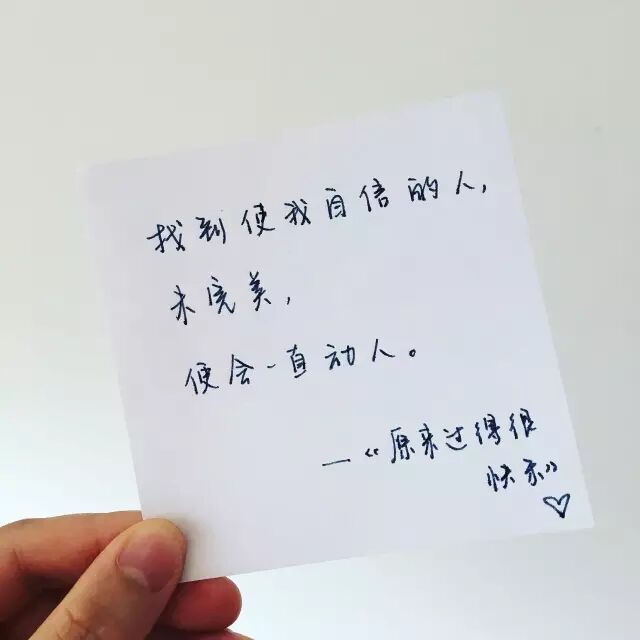 找到使我自信的人,
未完美,
便会一直动人。
—《原来过得很
快乐》